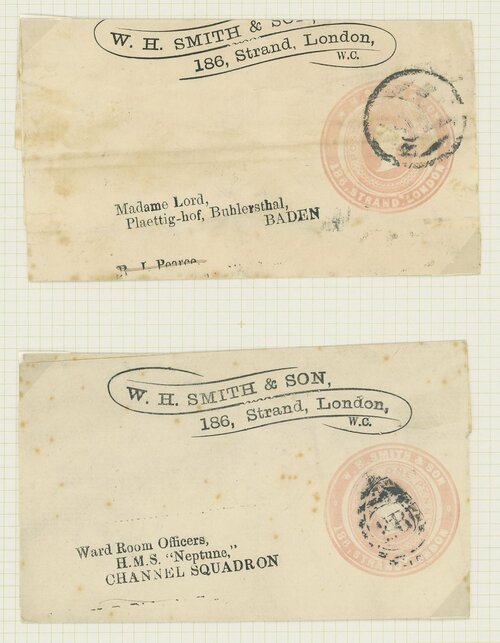 W. H. SMITH & SON,
186, Strand, London,
W.C.
186, STRAND, LONDON
Madame Lord,
Plaettig-hof, Buhlersthal,
BADEN
R. J. Pearce.
W. H. SMITH & SON,
186, Strand, London,
W.C.
W. H. SMITH & SON
186, STRAND, LONDON
Ward Room Officers,
H.M.S. "Neptune,"
CHANNEL SQUADRON